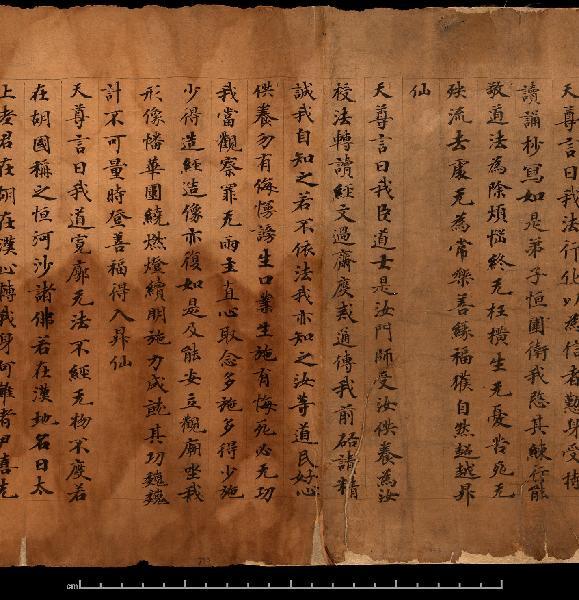 天尊言曰我法行化以為信者懃身受持
讀誦抄寫如是弟子恒圍衛我愍其練行能
敬道法為除煩惱終无枉橫生无憂苦死无
殃流去處无為常樂善緣福獲自然超越昇
仙
天尊言曰我臣道士是汝門師受汝供養為汝
校法轉讀經文過齋度戒道傳我前啓請精
誠我自知之若不依法我亦知之汝等道民好心
供養勿有侮慢謗生口業生施有悔死必无功
我當觀察罪无雨主直心取念多施多得少施
少得造經造像亦復如是及能安立觀廟坐我
形像幡華圍繞燃燈續明施力成就其功巍巍
計不可量時登善福得入昇仙
天尊言曰我道寬廓无法不經无物不度若
在胡國稱之恒河沙諸佛若在漢地名曰太
上老君在胡在漢心轉我身何難者尹喜先
cm